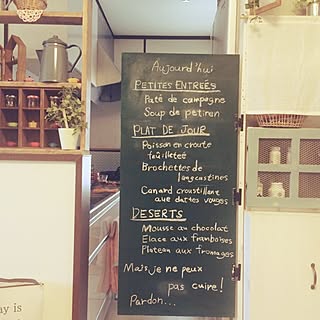 Aujourd'hui
PETITES ENTREÉS
Paté de campagne
Soup de petiran
PLAT DE JOUR
Poisson en croute
feuilleteé
Brochettes de
langoustines
Canard croustillent
aux dattes rouges
DESERTS
Mousse au chocolat
Elace aux framboises
Plateau aux fromages
Mais, je ne peux
pas cuire!
Pardon...
ay is